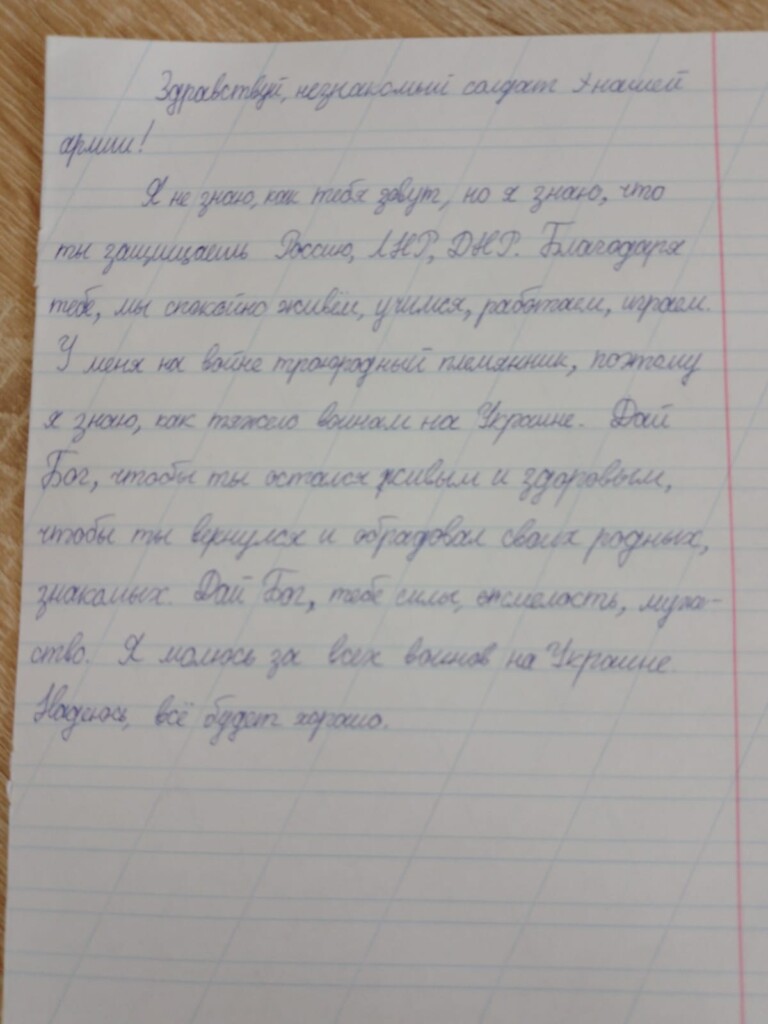 Здравствуй, незнакомый солдат нашей
армии!
Я не знаю, как тебя зовут, но я знаю, что
ты защищаешь Россию, ЛНР, ДНР. Благодаря
тебе, мы спокойно живём, учимся, работаем, играем.
У меня на войне троюродный племянник, поэтому
я знаю, как тяжело воинам на Украине. Дай
Бог, чтобы ты остался живым и здоровым,
чтобы ты вернулся и обрадовал своих родных,
знакомых. Дай Бог, тебе силы, смелость, муже-
ство. Я молюсь за всех воинов на Украине.
Надеюсь, всё будет хорошо.